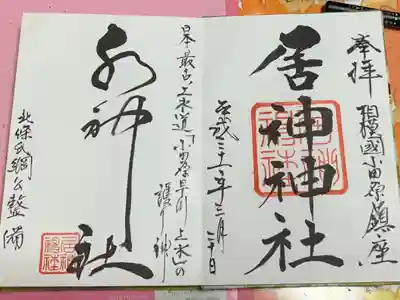 奉拝
相模國小田原鎮座
居神神社
平成三十一年三月二十日
日本最古の上水道「小田原早川上水」の
護り神
水神社
北條氏綱公整備